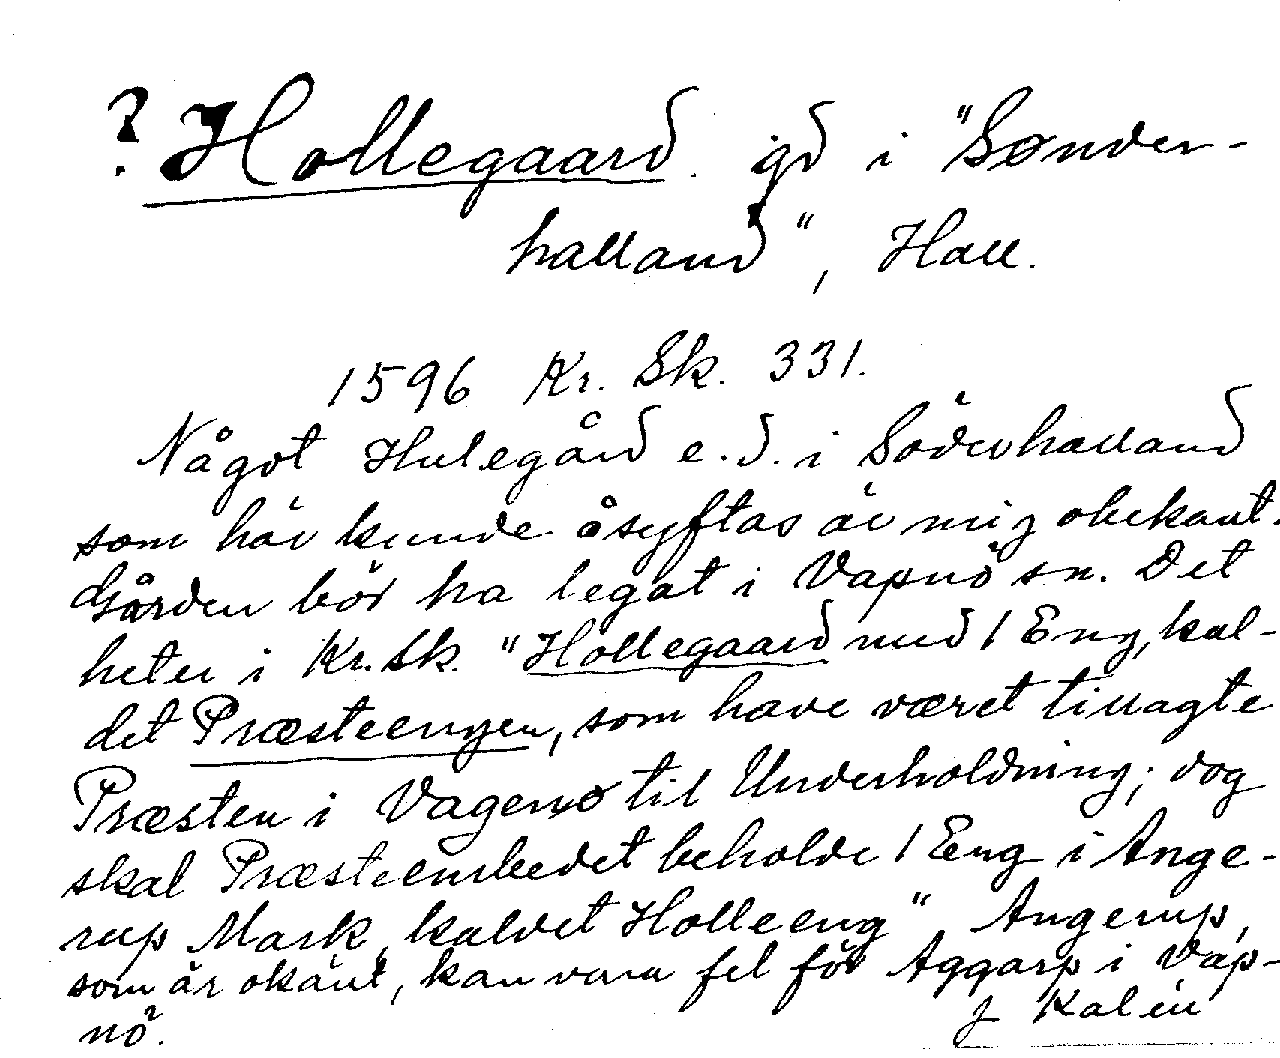 ? Hollegaard. gd i "Sønder-
halland", Hall.
1596 Kr. Sk. 331.
Något Hulegård e.d. i Söderhalland
som här kunde åsyftas är mig obekant.
Gården bör ha legat i Vapnö sn. Det
heter i Kr. Sk. "Hollegaard med 1 Eng, kal-
det Præsteengen, som have været tillagte
Præsten i Vagenø til Underholdning; dog
skal Præsteembedet beholde 1 Eng i Ange-
rup Mark, kaldet Holleeng" Angerup,
som är okänt, kan vara fel för Aggarp i Vap-
nö.
J Kalén